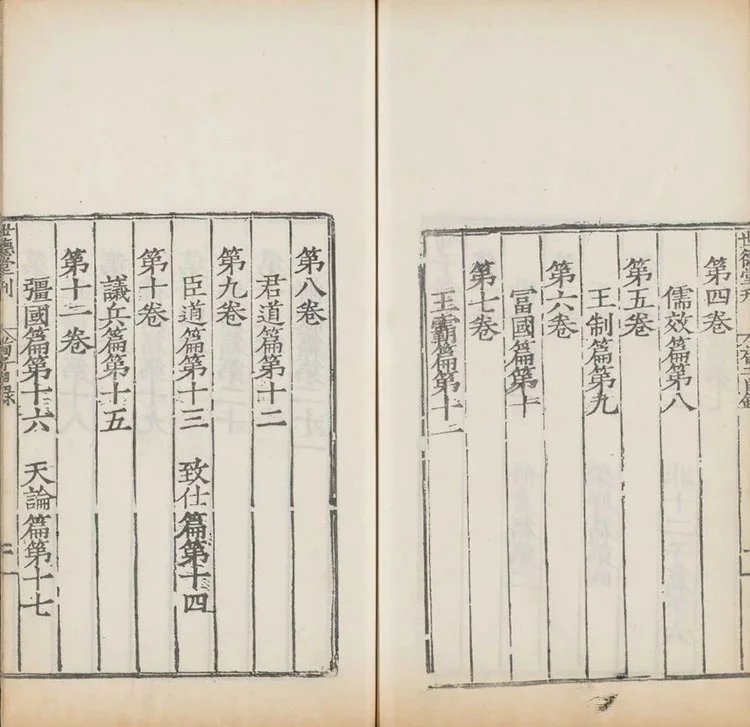 世德堂刊
第四卷
儒效篇第八
第五卷
王制篇第九
第六卷
富國篇第十
第七卷
王霸篇第十一
第八卷
君道篇第十二
第九卷
臣道篇第十三 致仕篇第十四
第十卷
議兵篇第十五
第十一卷
彊國篇第十六 天論篇第十七
世德堂刊